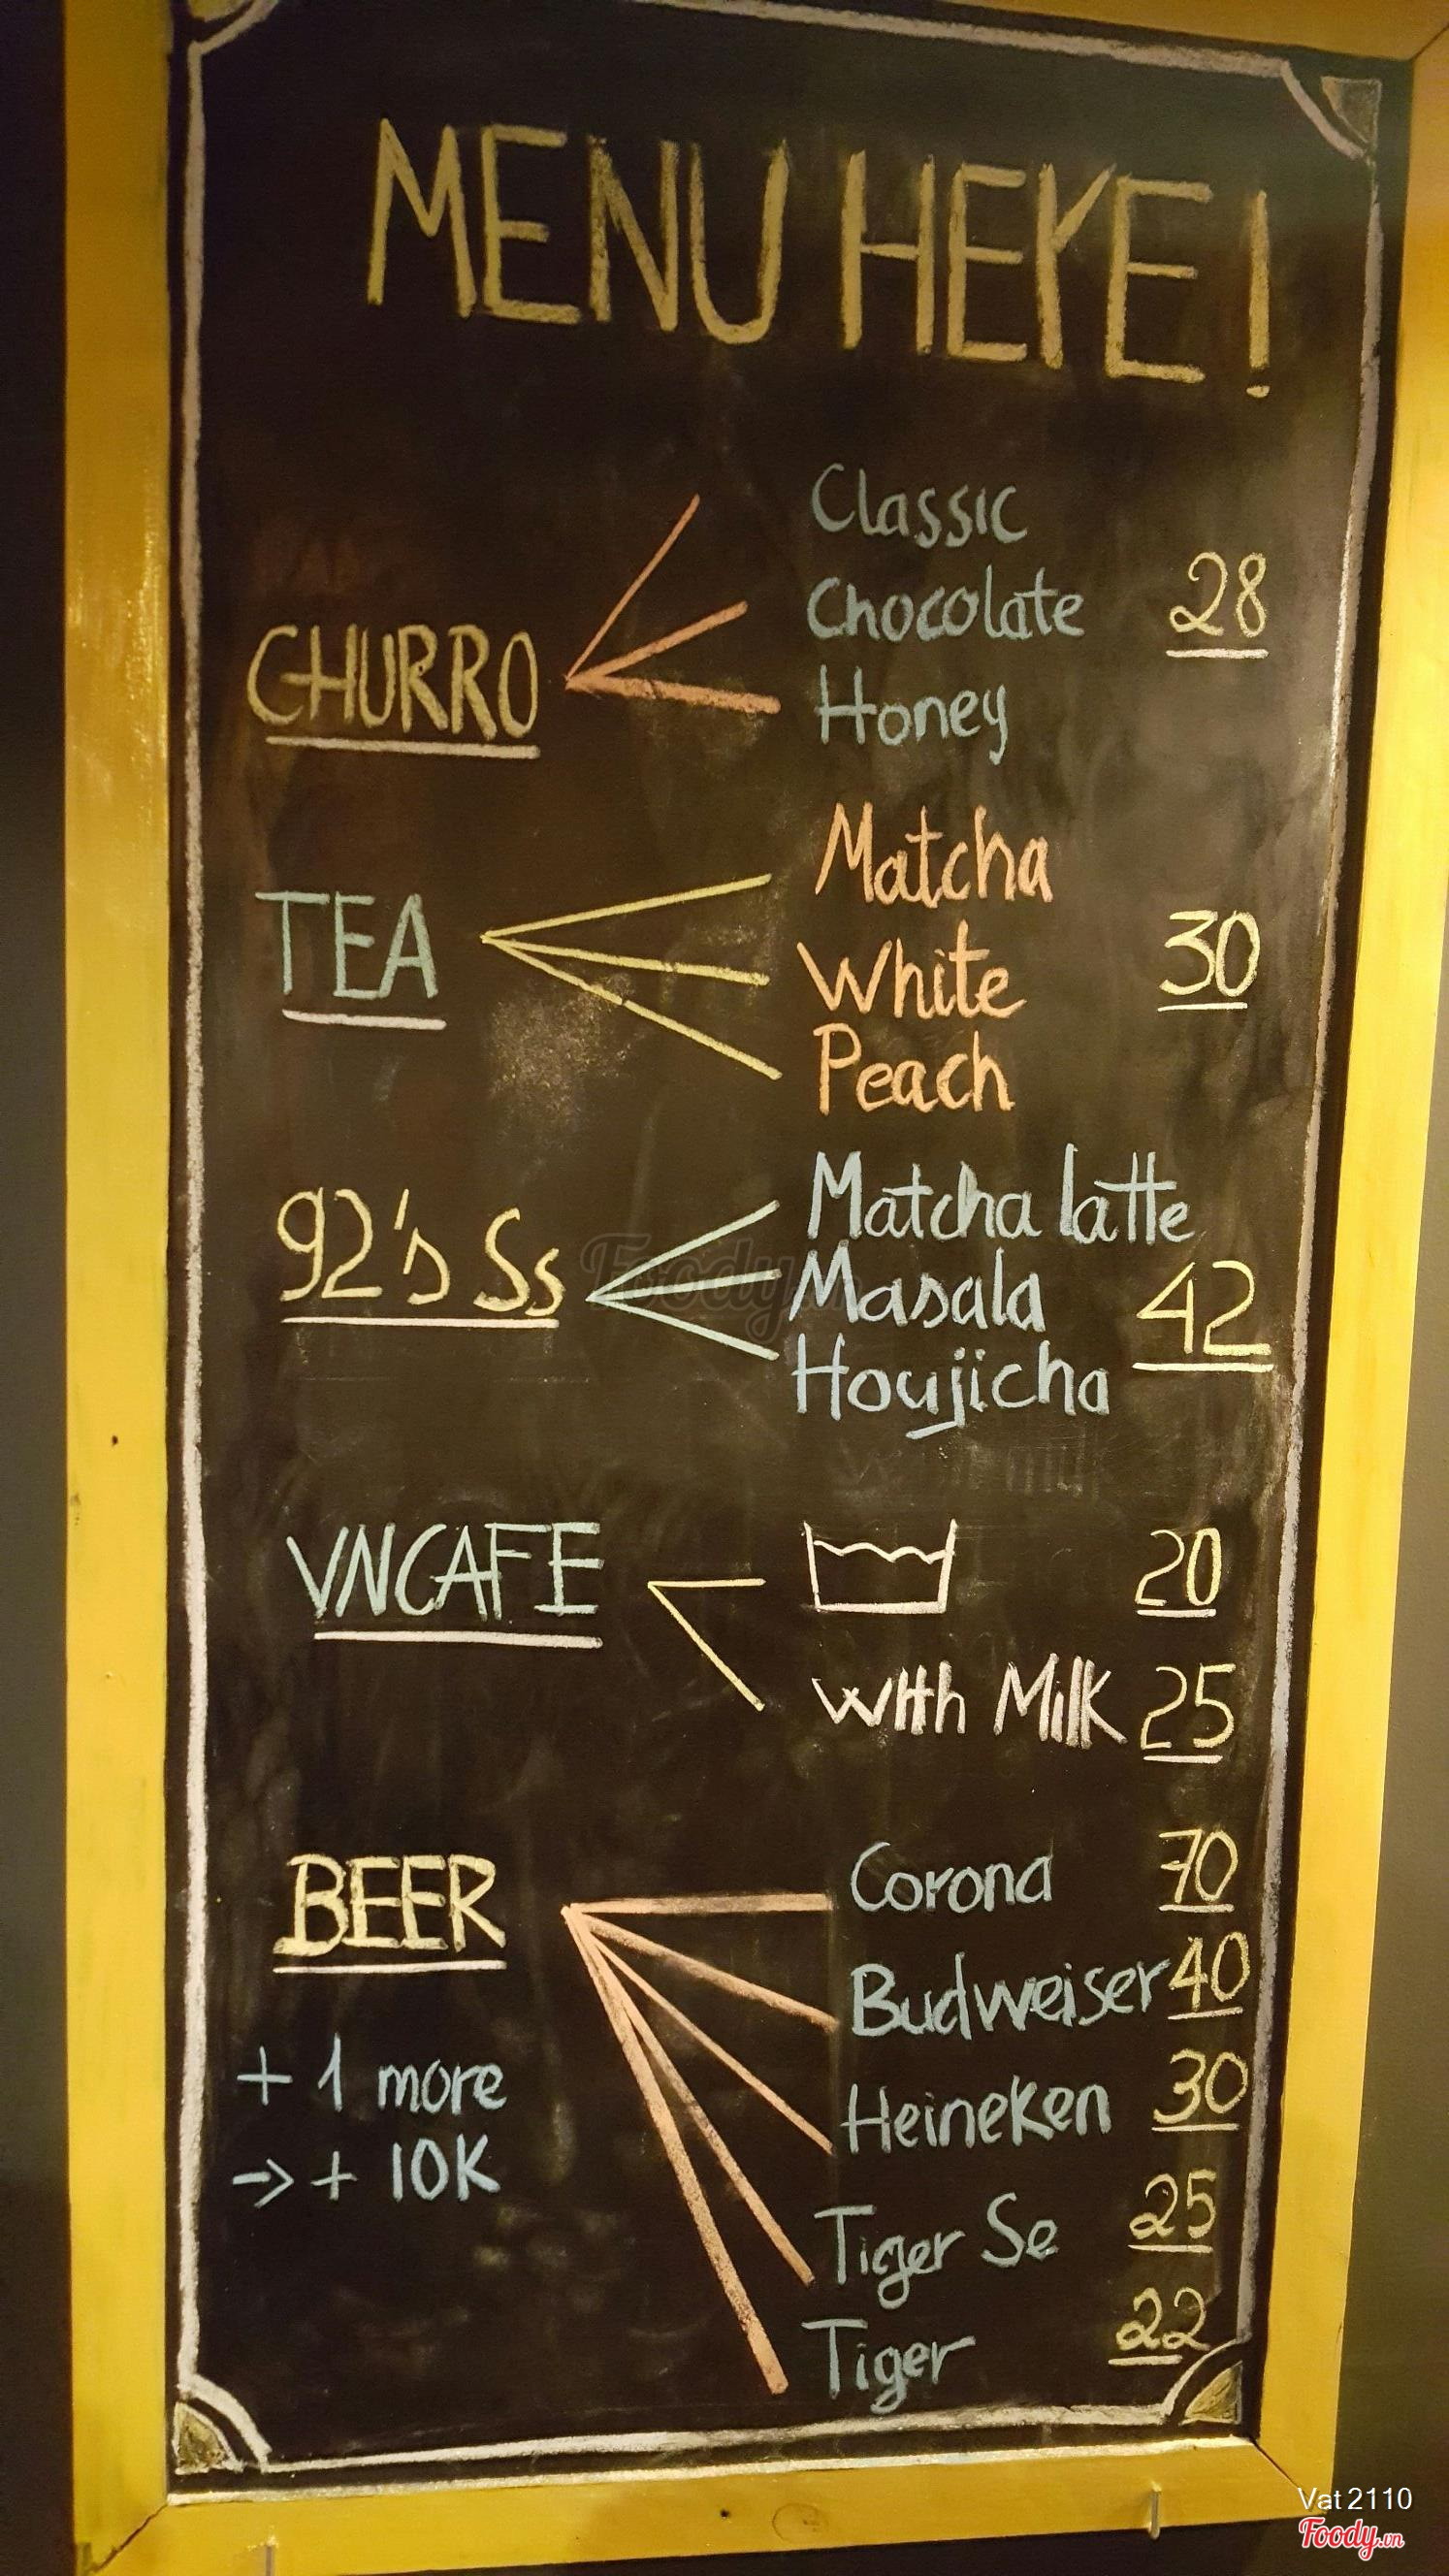 MENU HERE!
CHURRO
Classic
Chocolate
Honey
28
TEA
Matcha
White
Peach
30
92's Ss
Matcha latte
Masala
Houjicha
42
VNCAFE
20
With Milk 25
BEER
Corona 70
Budweiser 40
Heineken 30
Tiger Se 25
Tiger 22
+ 1 more
→ + 10K
Foody.vn
Vat2110
Foody.vn